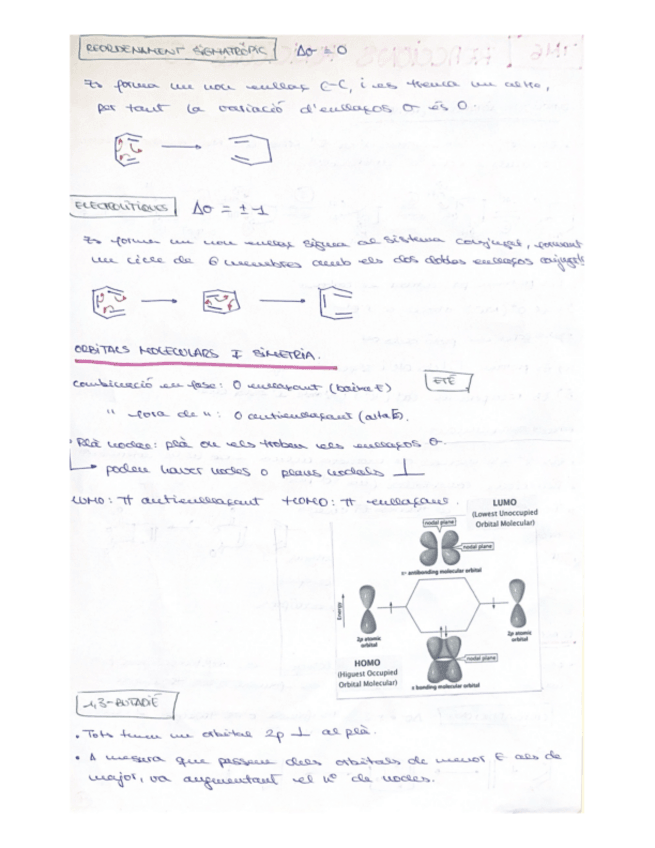 REORDENAMENT SIGMATRÒPIC Δσ = 0
Es forma un nou enllaç C-C, i es trenca un altre,
per tant la variació d'enllaços σ és 0.
ELECTROLÍTIQUES Δσ = ±1
Es forma un nou enllaç sigma al sistema conjugat, formant
un cicle de 6 membres amb els dos dobles enllaços conjugats
ORBITALS MOLECULARS I SIMETRIA.
Combinació en fase: O enllaçant (baixa E) ETÈ
" fora de ": O antienllaçant (alta E).
· Plà nodal: plà on es troben els enllaços σ.
poden haver nodes o plans nodals ⊥
LUMO: π antienllaçant HOMO: π enllaçant.
LUMO
(Lowest Unoccupied
Orbital Molecular)
nodal plane
nodal plane
π* antibonding molecular orbital
Energy
2p atomic
orbital
2p atomic
orbital
HOMO
(Higuest Occupied
Orbital Molecular)
nodal plane
π bonding molecular orbital
1,3-BUTADIÈ
• Tots tenen un orbital 2p ⊥ al plà.
• A mesura que passem dels orbitals de menor E als de
major, va augmentant el nº de nodes.